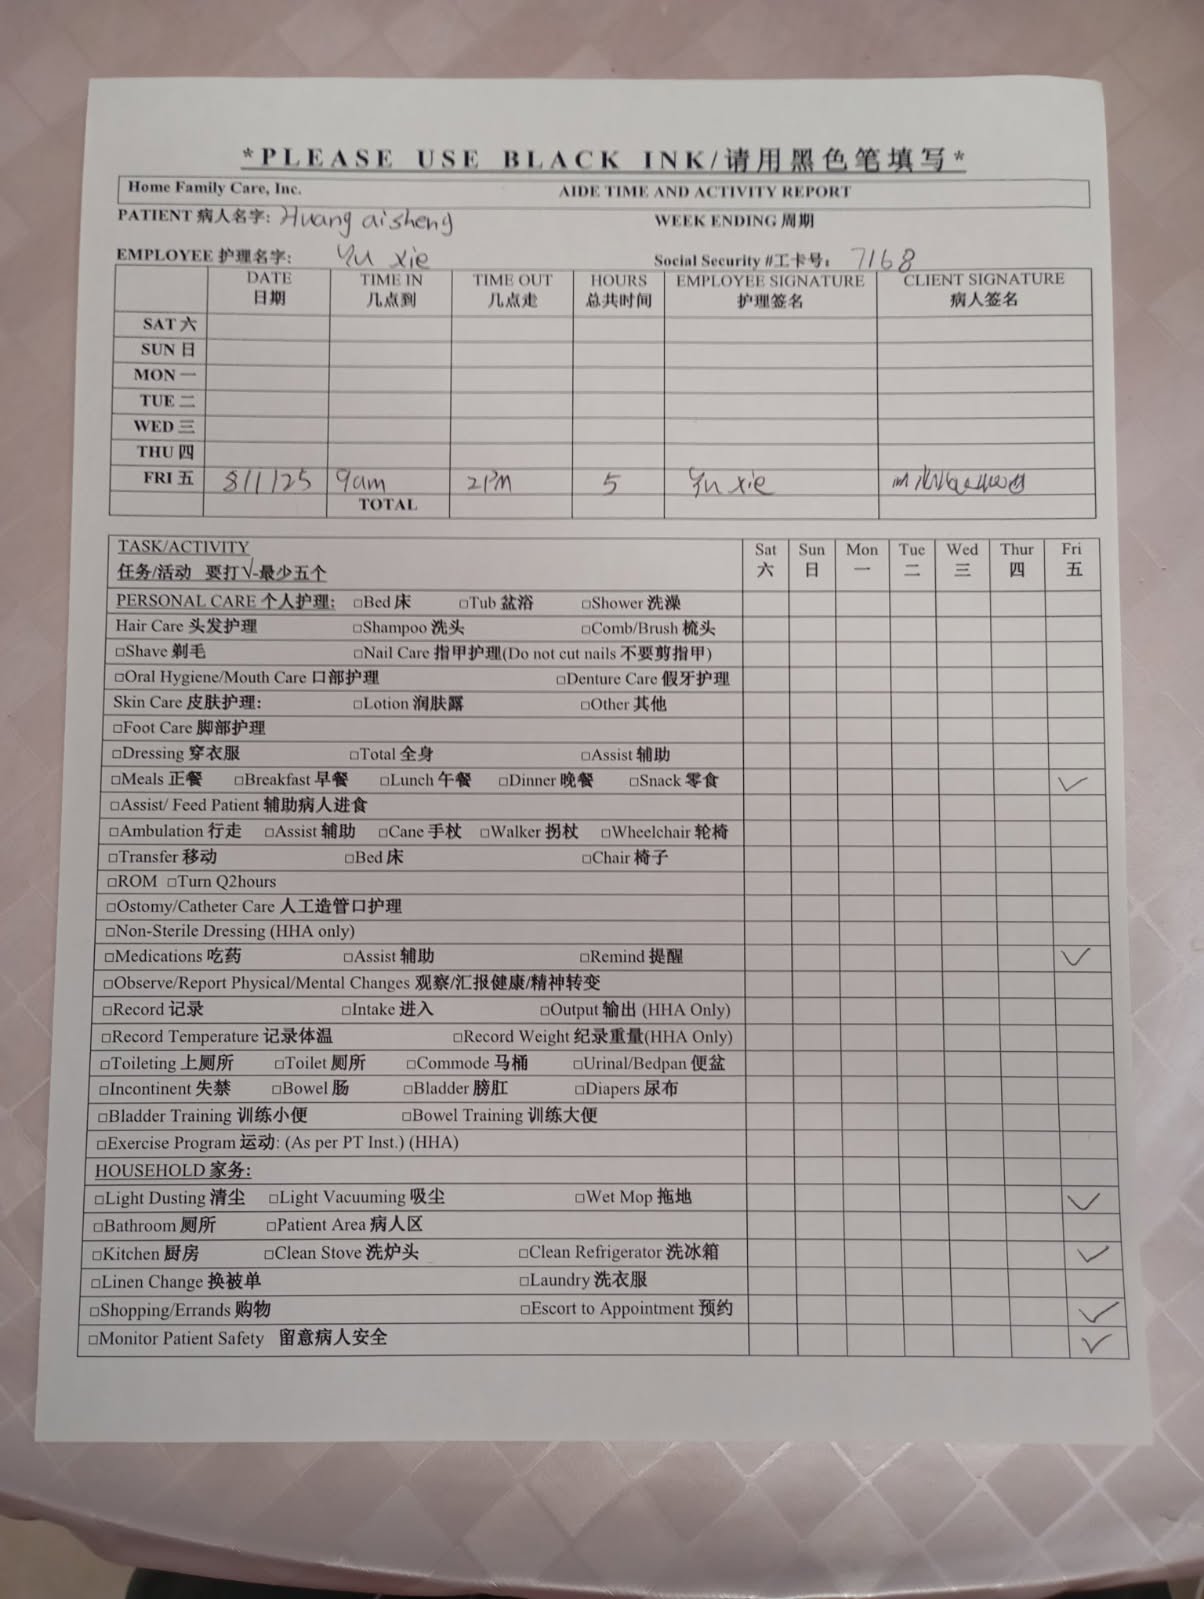 *PLEASE USE BLACK INK/请用黑色笔填写*
Home Family Care, Inc. AIDE TIME AND ACTIVITY REPORT
PATIENT 病人名字: Huang aisheng WEEK ENDING 周期
EMPLOYEE 护理名字: Yu Xie Social Security #工卡号: 7168
DATE TIME IN TIME OUT HOURS EMPLOYEE SIGNATURE CLIENT SIGNATURE
日期 几点到 几点走 总共时间 护理签名 病人签名
SAT 六
SUN 日
MON 一
TUE 二
WED 三
THU 四
FRI 五 8/1/25 9am 2PM 5 Yu Xie
TOTAL
TASK/ACTIVITY Sat Sun Mon Tue Wed Thur Fri
任务/活动 要打√-最少五个 六 日 一 二 三 四 五
PERSONAL CARE 个人护理: □Bed 床 □Tub 盆浴 □Shower 洗澡
Hair Care 头发护理 □Shampoo 洗头 □Comb/Brush 梳头
□Shave 剃毛 □Nail Care 指甲护理(Do not cut nails 不要剪指甲)
□Oral Hygiene/Mouth Care 口部护理 □Denture Care 假牙护理
Skin Care 皮肤护理: □Lotion 润肤露 □Other 其他
□Foot Care 脚部护理
□Dressing 穿衣服 □Total 全身 □Assist 辅助
□Meals 正餐 □Breakfast 早餐 □Lunch 午餐 □Dinner 晚餐 □Snack 零食 ✓
□Assist/ Feed Patient 辅助病人进食
□Ambulation 行走 □Assist 辅助 □Cane 手杖 □Walker 拐杖 □Wheelchair 轮椅
□Transfer 移动 □Bed 床 □Chair 椅子
□ROM □Turn Q2hours
□Ostomy/Catheter Care 人工造管口护理
□Non-Sterile Dressing (HHA only)
□Medications 吃药 □Assist 辅助 □Remind 提醒 ✓
□Observe/Report Physical/Mental Changes 观察/汇报健康/精神转变
□Record 记录 □Intake 进入 □Output 输出 (HHA Only)
□Record Temperature 记录体温 □Record Weight 纪录重量(HHA Only)
□Toileting 上厕所 □Toilet 厕所 □Commode 马桶 □Urinal/Bedpan 便盆
□Incontinent 失禁 □Bowel 肠 □Bladder 膀肛 □Diapers 尿布
□Bladder Training 训练小便 □Bowel Training 训练大便
□Exercise Program 运动: (As per PT Inst.) (HHA)
HOUSEHOLD 家务:
□Light Dusting 清尘 □Light Vacuuming 吸尘 □Wet Mop 拖地 ✓
□Bathroom 厕所 □Patient Area 病人区
□Kitchen 厨房 □Clean Stove 洗炉头 □Clean Refrigerator 洗冰箱 ✓
□Linen Change 换被单 □Laundry 洗衣服
□Shopping/Errands 购物 □Escort to Appointment 预约 ✓
□Monitor Patient Safety 留意病人安全 ✓